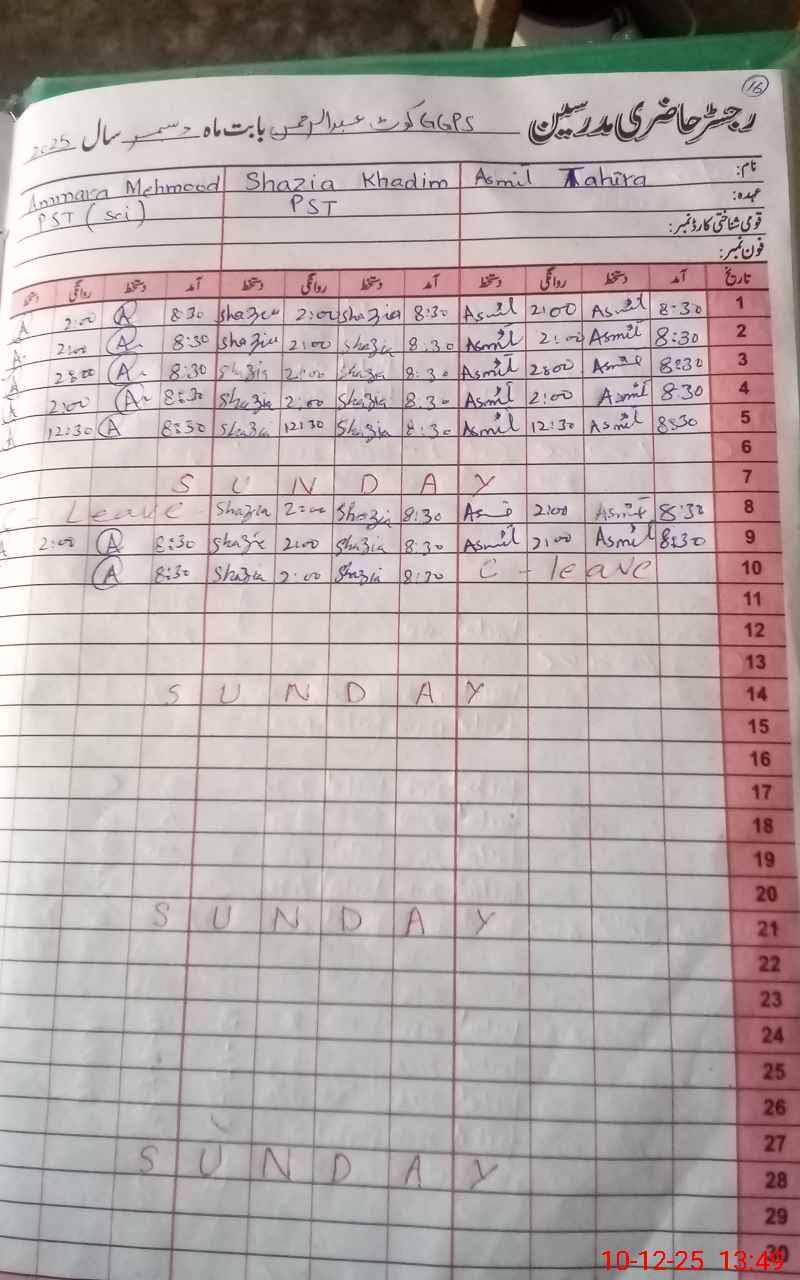 16
رجسٹر حاضری مدرسین GGPS کوٹ عبدالرحمن بابت ماہ دسمبر سال 2025
نام: Asmil Tahira Shazia Khadim Ammara Mehmood
عہدہ: PST PST (Sci)
قومی شناختی کارڈ نمبر:
فون نمبر:
تاریخ آمد دستخط روانگی دستخط آمد دستخط روانگی دستخط آمد دستخط روانگی دستخط
1 8:30 Asmil 2:00 Asmil 8:30 Shazia 2:00 Shazia 8:30 A 2:00 A
2 8:30 Asmil 2:00 Asmil 8:30 Shazia 2:00 Shazia 8:30 A 2:00 A
3 8:30 Asmil 2:00 Asmil 8:30 Shazia 2:00 Shazia 8:30 A 2:00 A
4 8:30 Asmil 2:00 Asmil 8:30 Shazia 2:00 Shazia 8:30 A 2:00 A
5 8:30 Asmil 12:30 Asmil 8:30 Shazia 12:30 Shazia 8:30 A 12:30 A
6
7 SUNDAY
8 8:30 Asmil 2:00 Asmil 8:30 Shazia 2:00 Shazia C - Leave
9 8:30 Asmil 2:00 Asmil 8:30 Shazia 2:00 Shazia 8:30 A 2:00 A
10 C - leave 8:30 Shazia 2:00 Shazia 8:30 A
11
12
13
14 SUNDAY
15
16
17
18
19
20
21 SUNDAY
22
23
24
25
26
27
28 SUNDAY
29
30
10-12-25 13:49